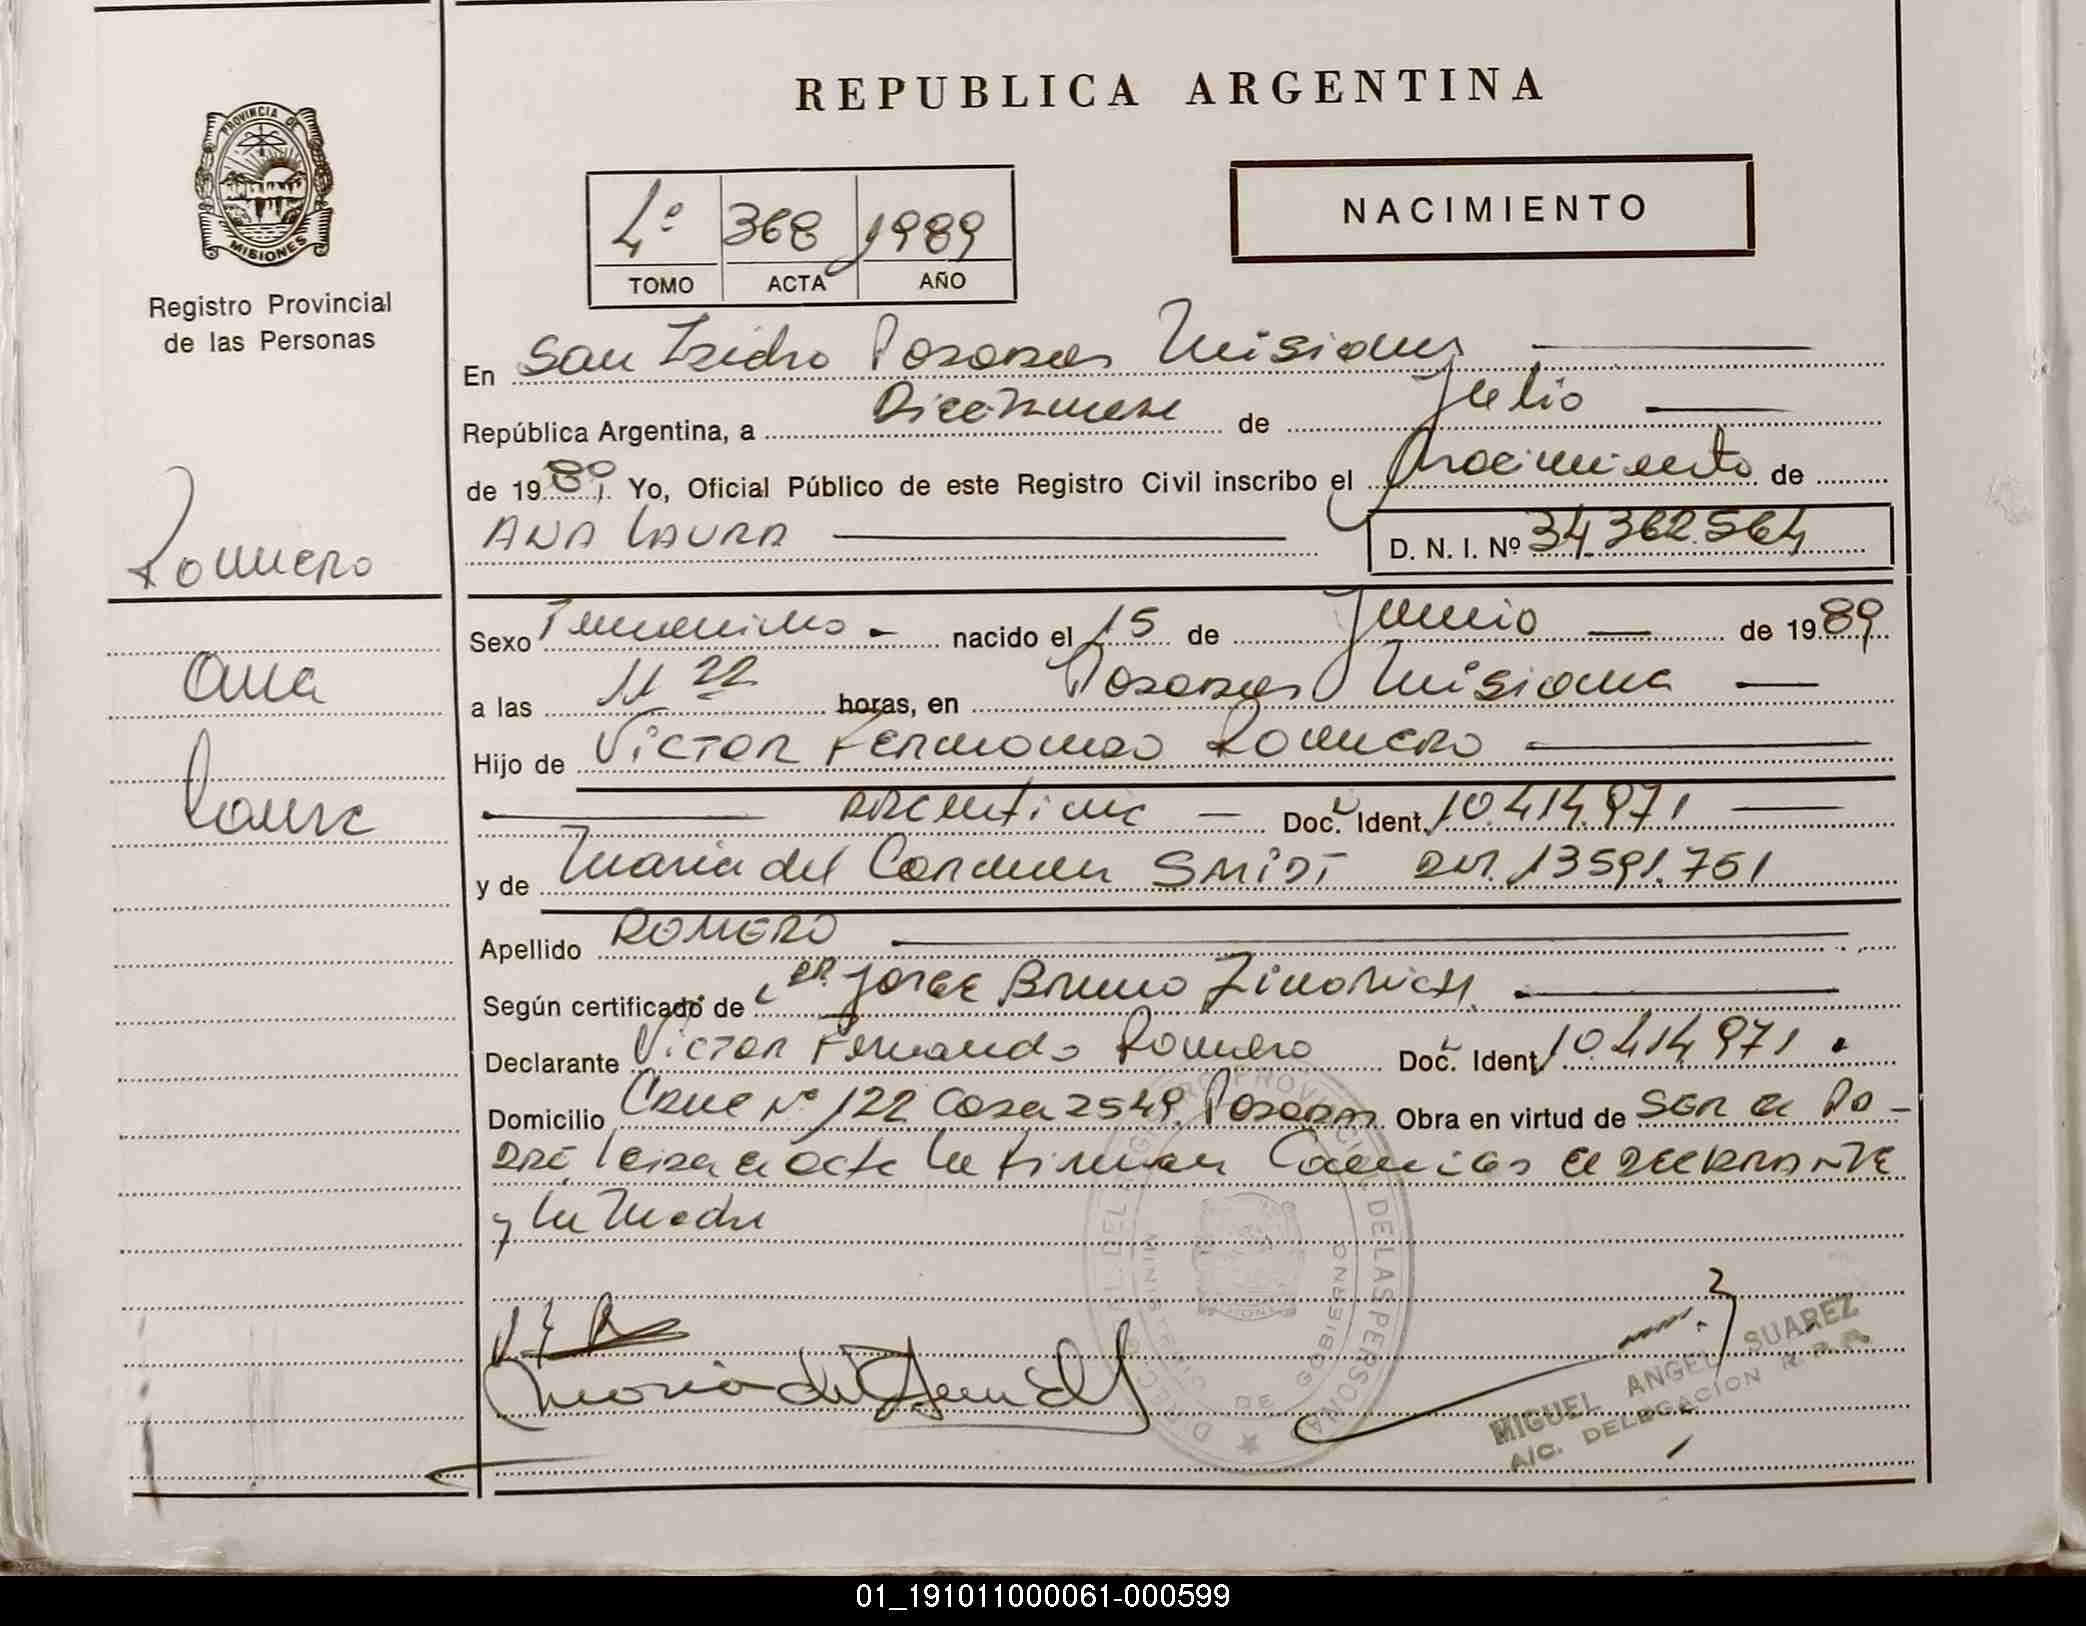 REPUBLICA ARGENTINA
PROVINCIA DE
MISIONES
Registro Provincial
de las Personas
4º 368 1989
TOMO ACTA AÑO
NACIMIENTO
En San Isidro Posadas Misiones
República Argentina, a Diecinueve de Julio
de 1989. Yo, Oficial Público de este Registro Civil inscribo el Nacimiento de
ANA LAURA
D. N. I. Nº 34.362.564
Romero
Ana
Laura
Sexo Femenino nacido el 15 de Junio de 1989
a las 11 22 horas, en Posadas Misiones
Hijo de Victor Fernando Romero
argentino Doc. Ident. 10.414.971
y de Maria del Carmen SMIDT DNI. 13591.751
Apellido ROMERO
Según certificado de Jorge Bruno
Declarante Victor Fernando Romero Doc. Ident. 10.414.971
Domicilio Nº 122 Casa 2549. Posadas Obra en virtud de ser el Pa-
dre, leida el acta la firman el declarante
y la Madre
REGISTRO PROVINCIAL DE LAS PERSONAS
MINISTERIO DE GOBIERNO
MIGUEL ANGEL SUAREZ
A/C. DELEGACION
01_191011000061-000599